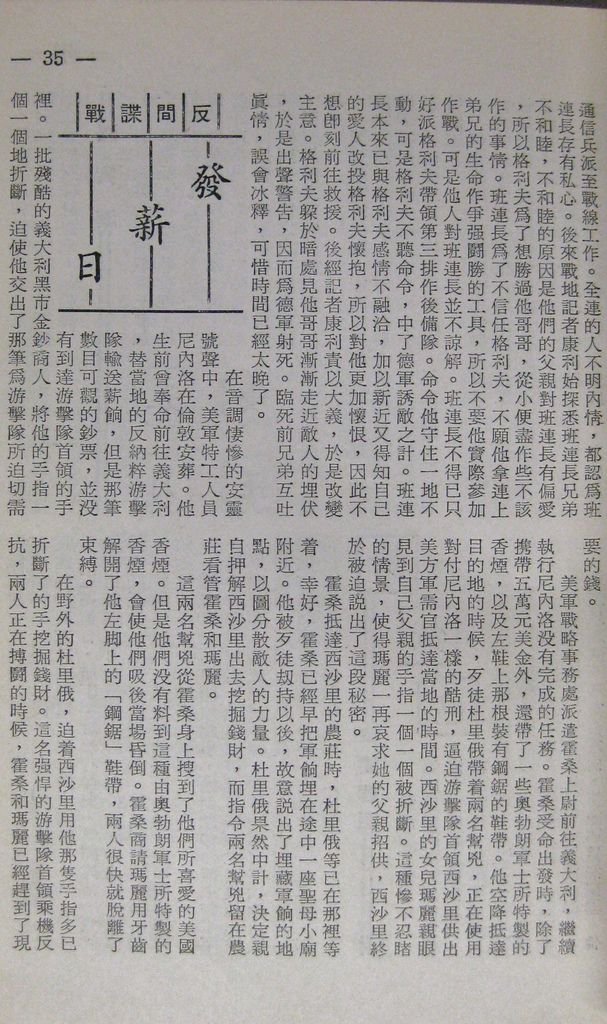 — 35 —
通信兵派至戰線工作。全連的人不明內情，都認爲班
連長存有私心。後來戰地記者康利始探悉班連長兄弟
不和睦，不和睦的原因是他們的父親對班連長有偏愛
，所以格利夫爲了想勝過他哥哥，從小便盡作些不該
作的事情。班連長爲了不信任格利夫，不願他拿連上
弟兄的生命作爭强鬪勝的工具，所以不要他實際參加
作戰。可是他人對班連長並不諒解。班連長不得已只
好派格利夫帶領第三排作後備隊。命令他守住一地不
動，可是格利夫不聽命令，中了德軍誘敵之計。班連
長本來已與格利夫感情不融洽，加以新近又得知自己
的愛人改投格利夫懷抱，所以對他更加懷恨，因此不
想卽刻前往救援。後經記者康利責以大義，於是改變
主意。格利夫躱於暗處見他哥哥漸漸走近敵人的埋伏
，於是出聲警告，因而爲德軍射死。臨死前兄弟互吐
眞情，誤會冰釋，可惜時間已經太晚了。
反間諜戰
發薪日
在音調悽慘的安靈
號聲中，美軍特工人員
尼內洛在倫敦安葬。他
生前曾奉命前往義大利
，替當地的反納粹游擊
隊輸送薪餉，但是那筆
數目可觀的鈔票，並沒
有到達游擊隊首領的手
裡。一批殘酷的義大利黑市金鈔商人，將他的手指一
個一個地折斷，迫使他交出了那筆爲游擊隊所迫切需
要的錢。
美軍戰略事務處派遣霍桑上尉前往義大利，繼續
執行尼內洛没有完成的任務。霍桑受命出發時，除了
携帶五萬元美金外，還帶了一些奧勃朗軍士所特製的
香煙，以及左鞋上那根裝有鋼鋸的鞋帶。他空降抵達
目的地的時候，歹徒杜里俄帶着兩名幫兇，正在使用
對付尼內洛一樣的酷刑，逼迫游擊隊首領西沙里供出
美方軍需官抵達當地的時間。西沙里的女兒瑪麗親眼
見到自己父親的手指一個一個被折斷。這種慘不忍睹
的情景，使得瑪麗一再哀求她的父親招供，西沙里終
於被迫說出了這段秘密。
霍桑抵達西沙里的農莊時，杜里俄等已在那裡等
着，幸好，霍桑已經早把軍餉埋在途中一座聖母小廟
附近。他被歹徒刼持以後，故意説出了埋藏軍餉的地
點，以圖分散敵人的力量。杜里俄果然中計，決定親
自押解西沙里出去挖掘錢財，而指令兩名幫兇留在農
莊看管霍桑和瑪麗。
這兩名幫兇從霍桑身上搜到了他們所喜愛的美國
香煙。但是他們没有料到這種由奧勃朗軍士所特製的
香煙，會使他們吸後當場昏倒。霍桑商請瑪麗用牙齒
解開了他左脚上的「鋼鋸」鞋帶，兩人很快就脫離了
束縛。
在野外的杜里俄，迫着西沙里用他那隻手指多已
折斷了的手挖掘錢財。這名强悍的游擊隊首領乘機反
抗，兩人正在搏鬪的時候，霍桑和瑪麗已經趕到了現